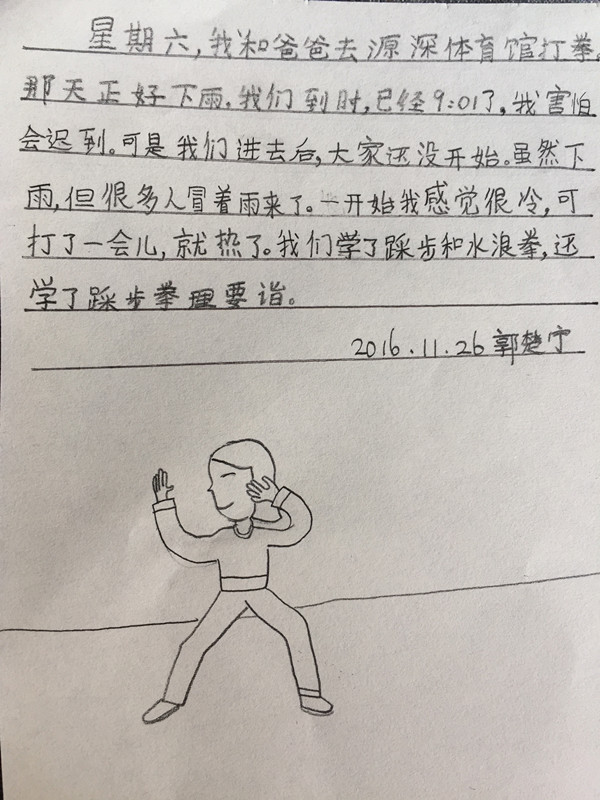 星期六,我和爸爸去源深体育馆打拳。
那天正好下雨.我们到时,已经9:01了,我害怕
会迟到。可是我们进去后,大家还没开始。虽然下
雨,但很多人冒着雨来了。一开始我感觉很冷,可
打了一会儿,就热了。我们学了踩步和水浪拳,还
学了踩步拳理要诣。
2016.11.26 郭楚宁